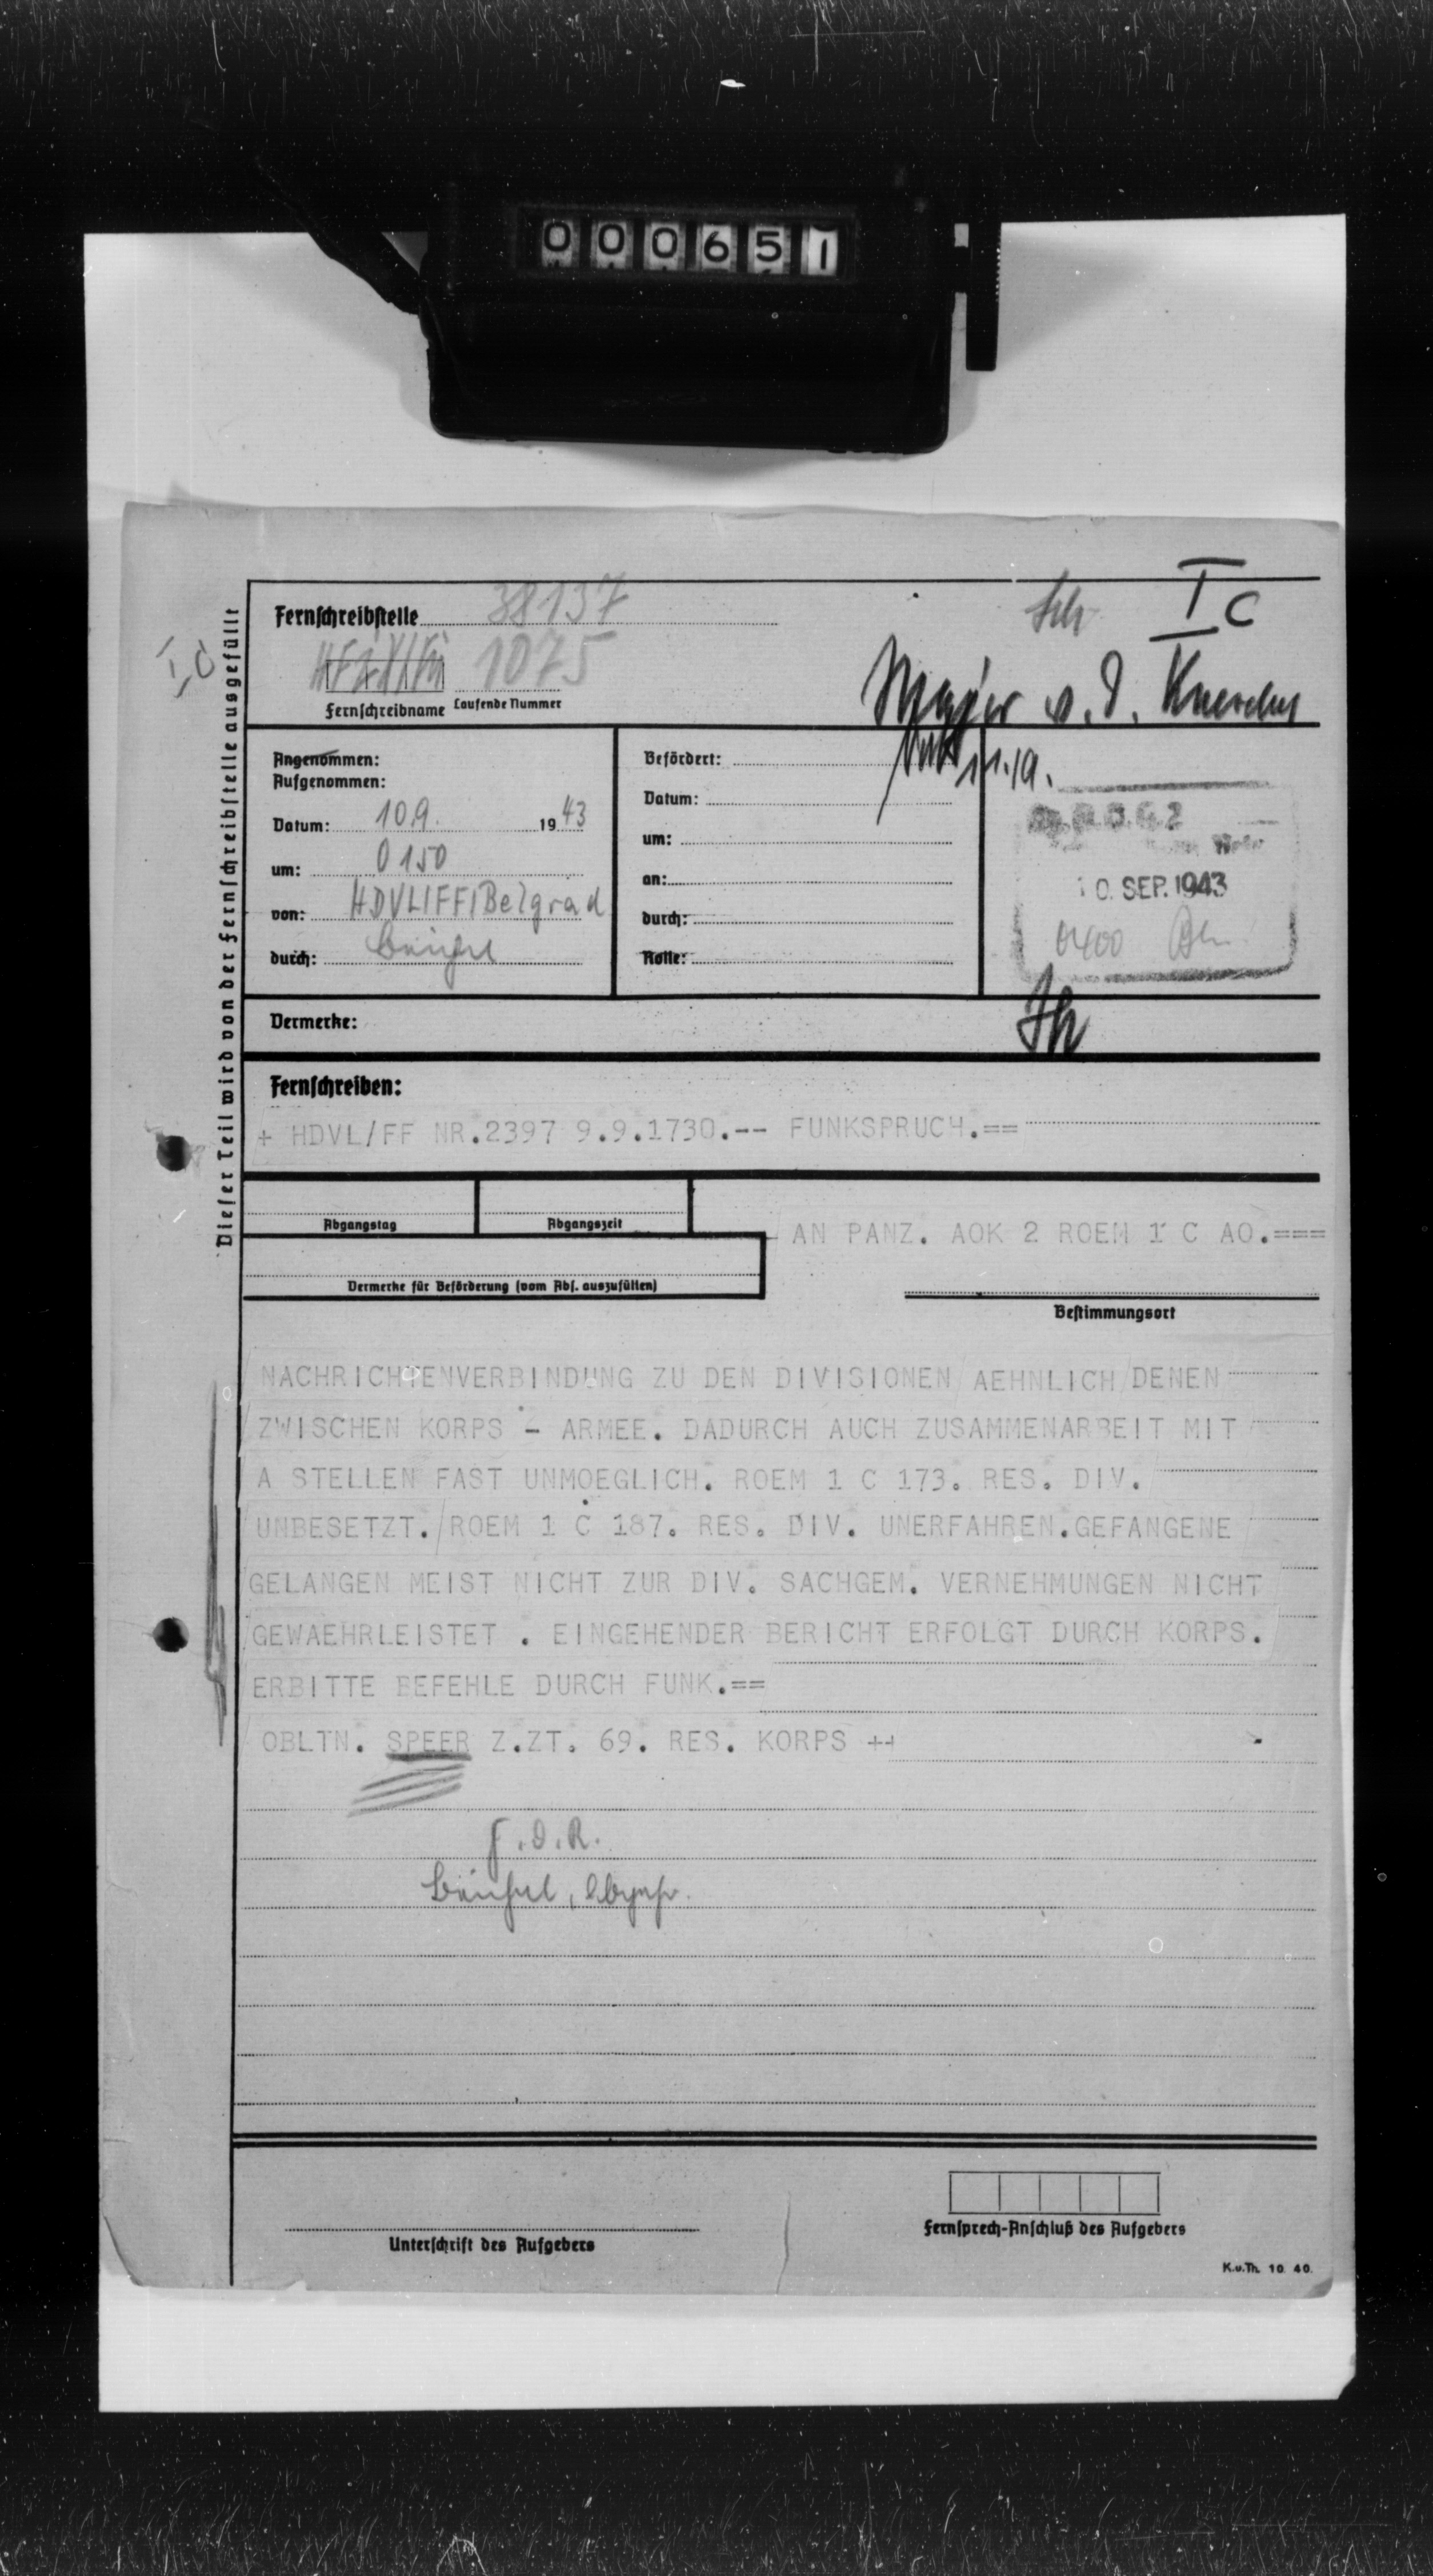 000651
Fernschreibstelle 38137
I C
1075
Fernschreibname Laufende Nummer
Major v. d.
I C
Dieser Teil wird von der Fernschreibstelle ausgefüllt
Angenommen:
Aufgenommen:
Datum: 10.9. 1943
um: 0150
von: HDVL/FF/Belgrad
durch:
Befördert:
Datum:
um:
an:
durch:
Rolle:
11./9.
10. SEP. 1943
0400
Vermerke:
Fernschreiben:
+ HDVL/FF NR.2397 9.9.1730.-- FUNKSPRUCH.==
Abgangstag Abgangszeit
AN PANZ. AOK 2 ROEM 1 C AO.===
Vermerke für Beförderung (vom Abs. auszufüllen)
Bestimmungsort
NACHRICHTENVERBINDUNG ZU DEN DIVISIONEN AEHNLICH DENEN
ZWISCHEN KORPS - ARMEE. DADURCH AUCH ZUSAMMENARBEIT MIT
A STELLEN FAST UNMOEGLICH. ROEM 1 C 173. RES. DIV.
UNBESETZT. ROEM 1 C 187. RES. DIV. UNERFAHREN.GEFANGENE
GELANGEN MEIST NICHT ZUR DIV. SACHGEM. VERNEHMUNGEN NICHT
GEWAEHRLEISTET . EINGEHENDER BERICHT ERFOLGT DURCH KORPS.
ERBITTE BEFEHLE DURCH FUNK.==
OBLTN. SPEER Z.ZT. 69. RES. KORPS ++
F.d.R.
Unterschrift des Aufgebers
Fernsprech-Anschluß des Aufgebers
K.u.Th. 10. 40.